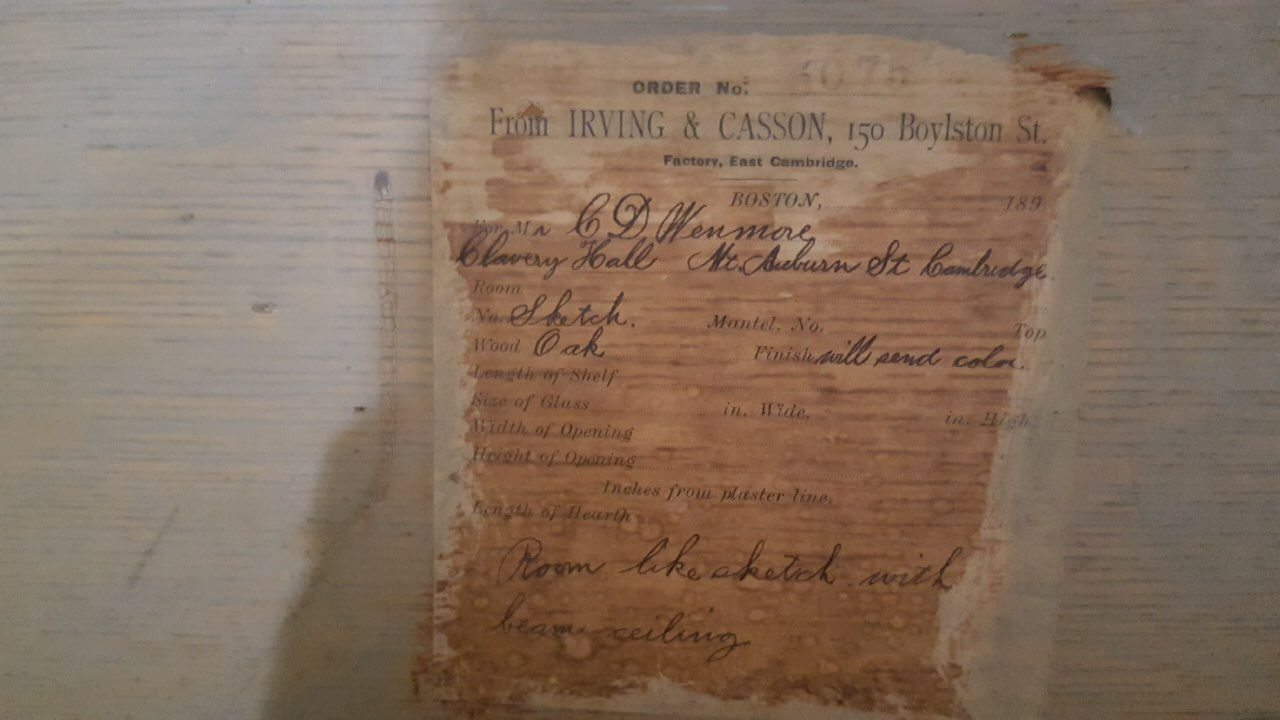 ORDER No.
From IRVING & CASSON, 150 Boylston St.
Factory, East Cambridge.
BOSTON, 189
For Mr C D Wenmore
Clavery Hall Mt. Auburn St Cambridge.
Room
No. Sketch. Mantel, No. Top
Wood Oak Finish will send color.
Length of Shelf
Size of Glass in. Wide, in. High
Width of Opening
Height of Opening
Inches from plaster line.
Length of Hearth
Room like sketch with
beam ceiling